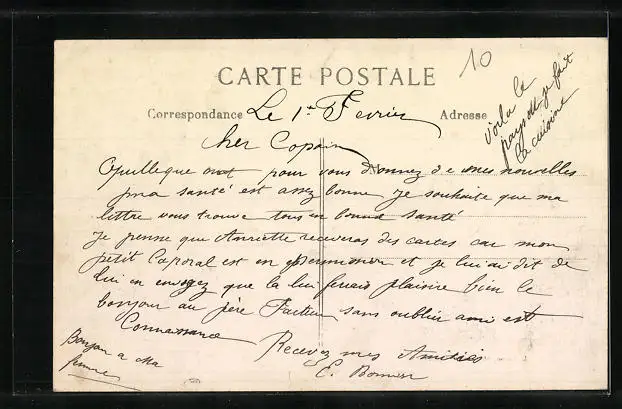 10
CARTE POSTALE
Correspondance Le 1er Fevrier Adresse
voila le
pays ou je fait
la cuisine
Cher Copain
Quelleque mot pour vous donnez de mes nouvelles
ma santé est assez bonne je souhaite que ma
lettre vous trouve tous en bonne santé
Je pense que Henriette receveras des cartes car mon
petit Caporal est en permission et je lui ai dit de
lui en envoyez que la lui ferais plaisire bien le
bonjour au père sans oublier ami est
Connaissance
Recevez mes Amitiés
E.
Bonjour a Ma
femme